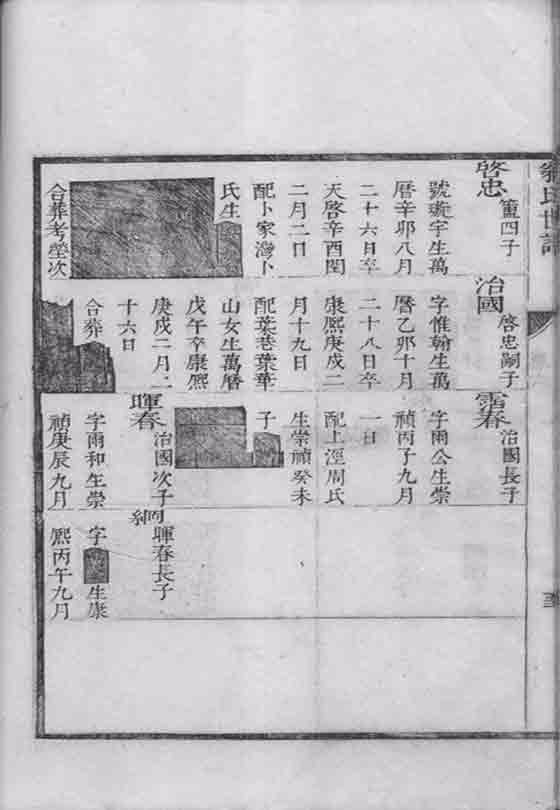 氏世
啓忠
四子
號璇宇生萬
曆辛卯八月
二十六日卒
天啓辛酉閏
二月二日
配卜家灣卜
氏生
合葬考塋次
治國
啓忠嗣子
字惟翰生萬
曆乙卯十月
二十八日卒
康熙庚戌二
月十九日
配葉巷葉華
山女生萬曆
戊午卒康熙
庚戌二月二
十六日
合葬
春
治國長子
字爾公生崇
禎丙子九月
一日
配上涇周氏
生崇禎癸未
子
暉春
治國次子
字爾和生崇
禎庚辰九月
絅
暉春長子
字 生康
熙丙午九月